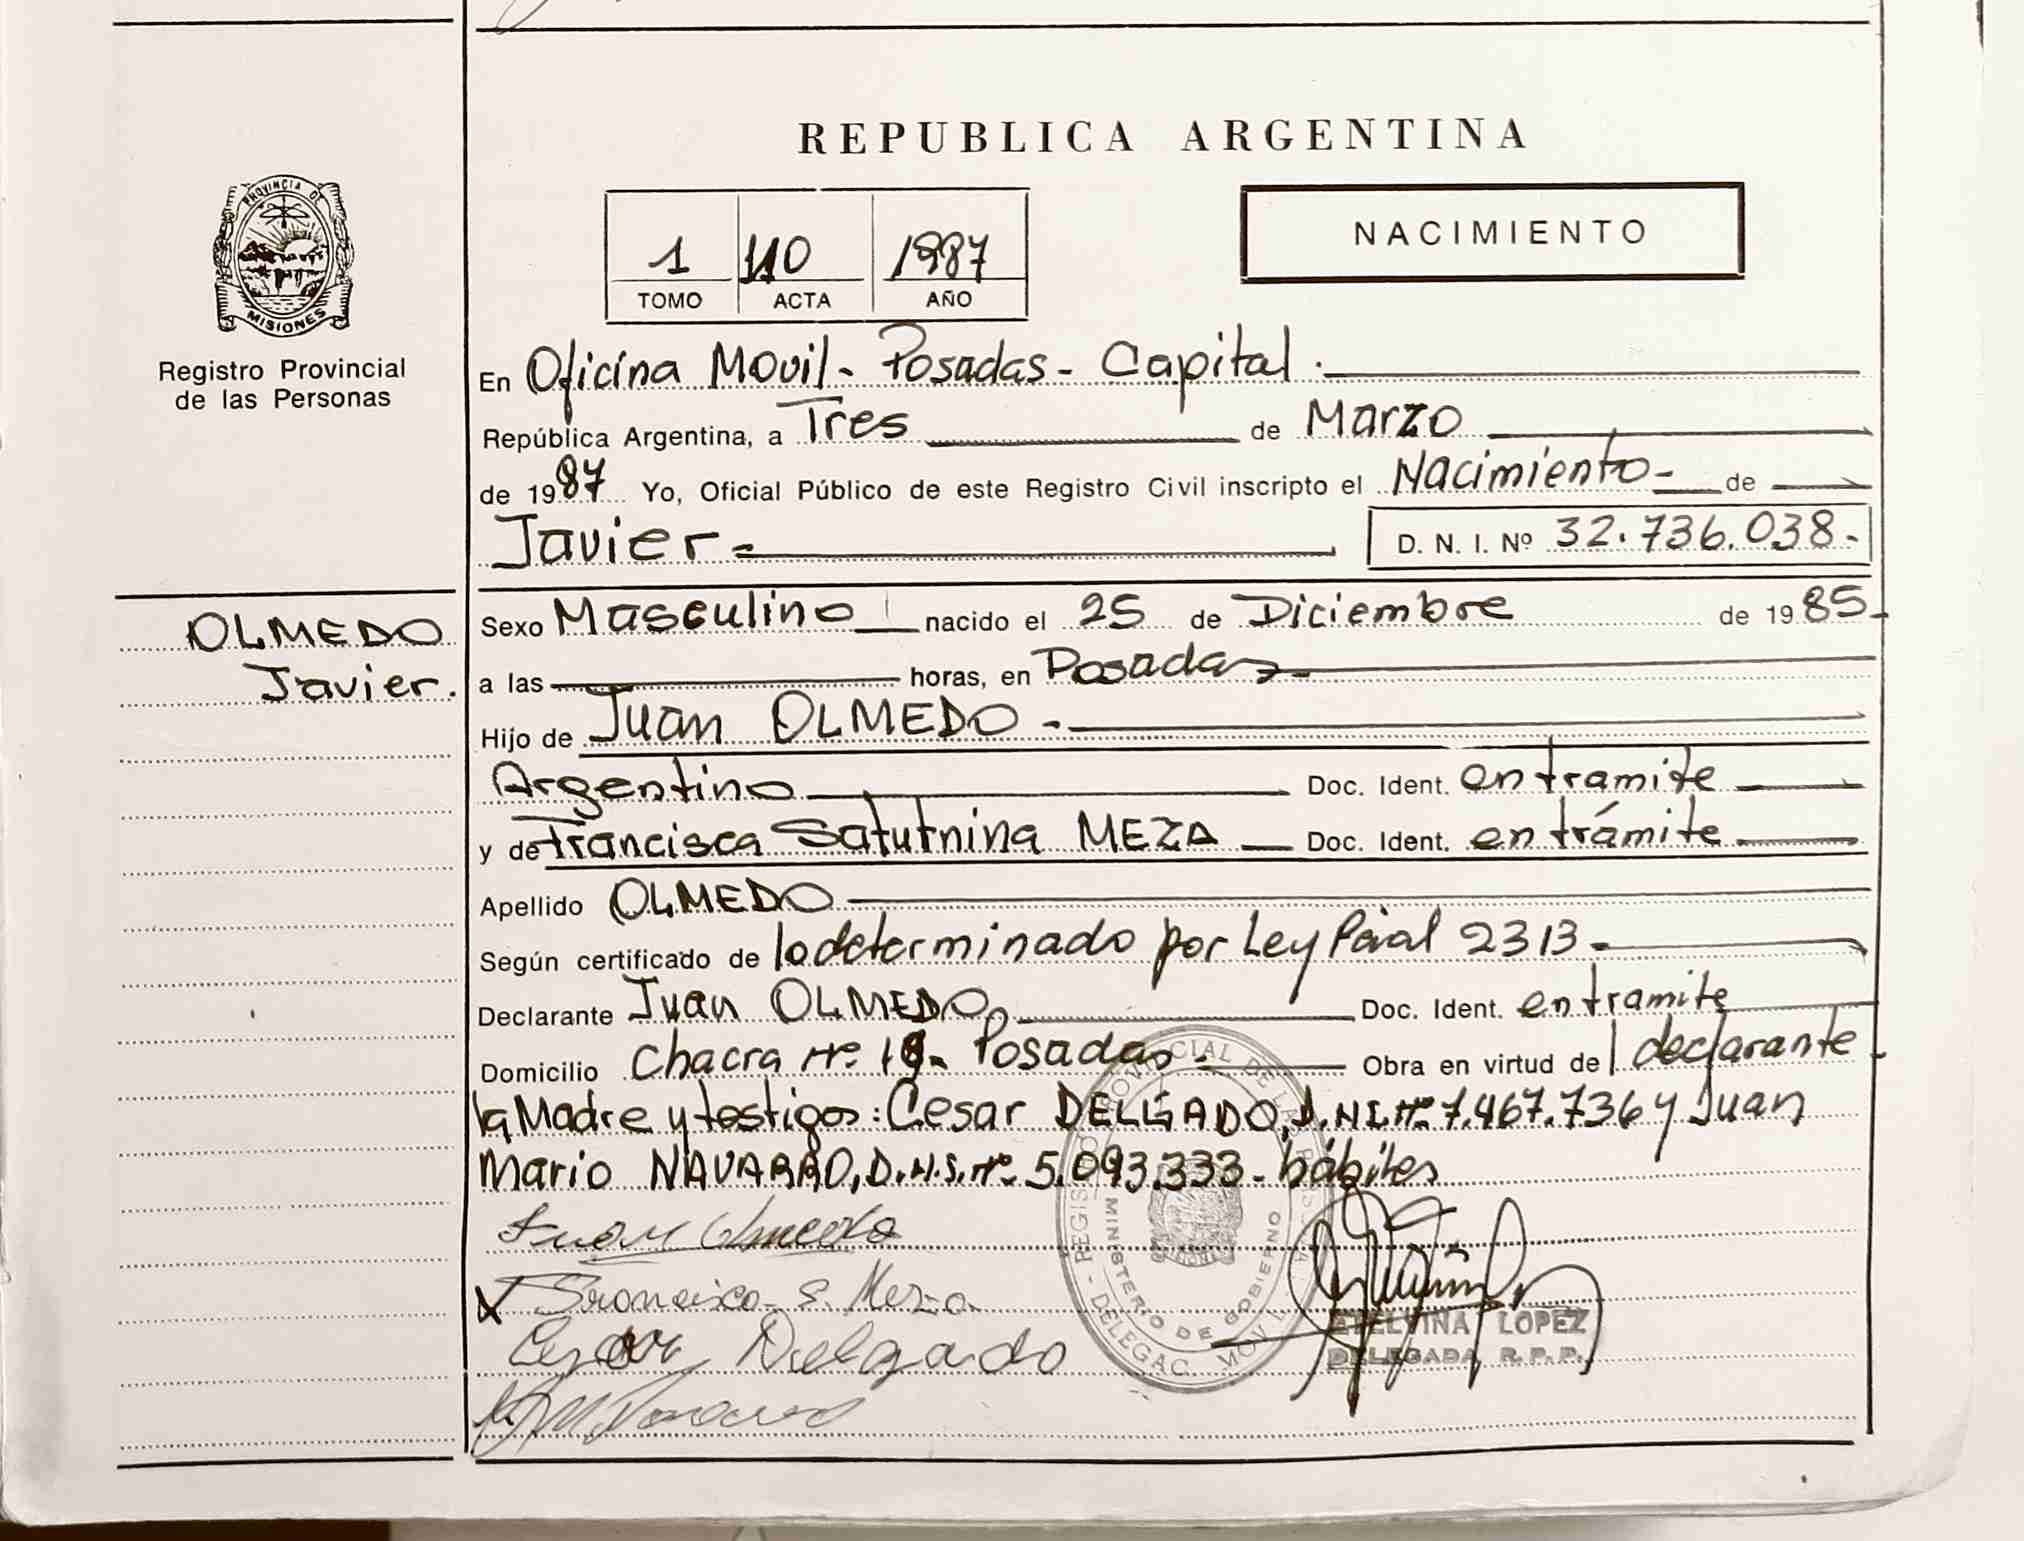 REPUBLICA ARGENTINA
PROVINCIA DE
MISIONES
Registro Provincial
de las Personas
1 110 1987
TOMO ACTA AÑO
NACIMIENTO
En Oficina Movil - Posadas - Capital.
República Argentina, a Tres de Marzo
de 1987 Yo, Oficial Público de este Registro Civil inscripto el Nacimiento - de
Javier - D. N. I. Nº 32.736.038.-
OLMEDO
Javier.
Sexo Masculino nacido el 25 de Diciembre de 1985
a las horas, en Posadas -
Hijo de Juan OLMEDO -
Argentino Doc. Ident. en tramite
y de Francisca Saturnina MEZA Doc. Ident. en trámite
Apellido OLMEDO
Según certificado de lo determinado por Ley Pcial 2313 -
Declarante Juan OLMEDO Doc. Ident. en tramite
Domicilio Chacra Nº Posadas - Obra en virtud de l declarante
la Madre y testigos: Cesar DELGADO, D.N.I. Nº 7.467.736 y Juan
Mario NAVARRO, D.N.I. Nº 5.093.333 - hábiles
Juan Olmedo
x Francisca S. Meza
Cesar Delgado
REGISTRO PROVINCIAL DE LAS PERSONAS
MINISTERIO DE GOBIERNO
DELEGAC. MOVIL
ETELVINA LOPEZ
DELEGADA R. P. P.